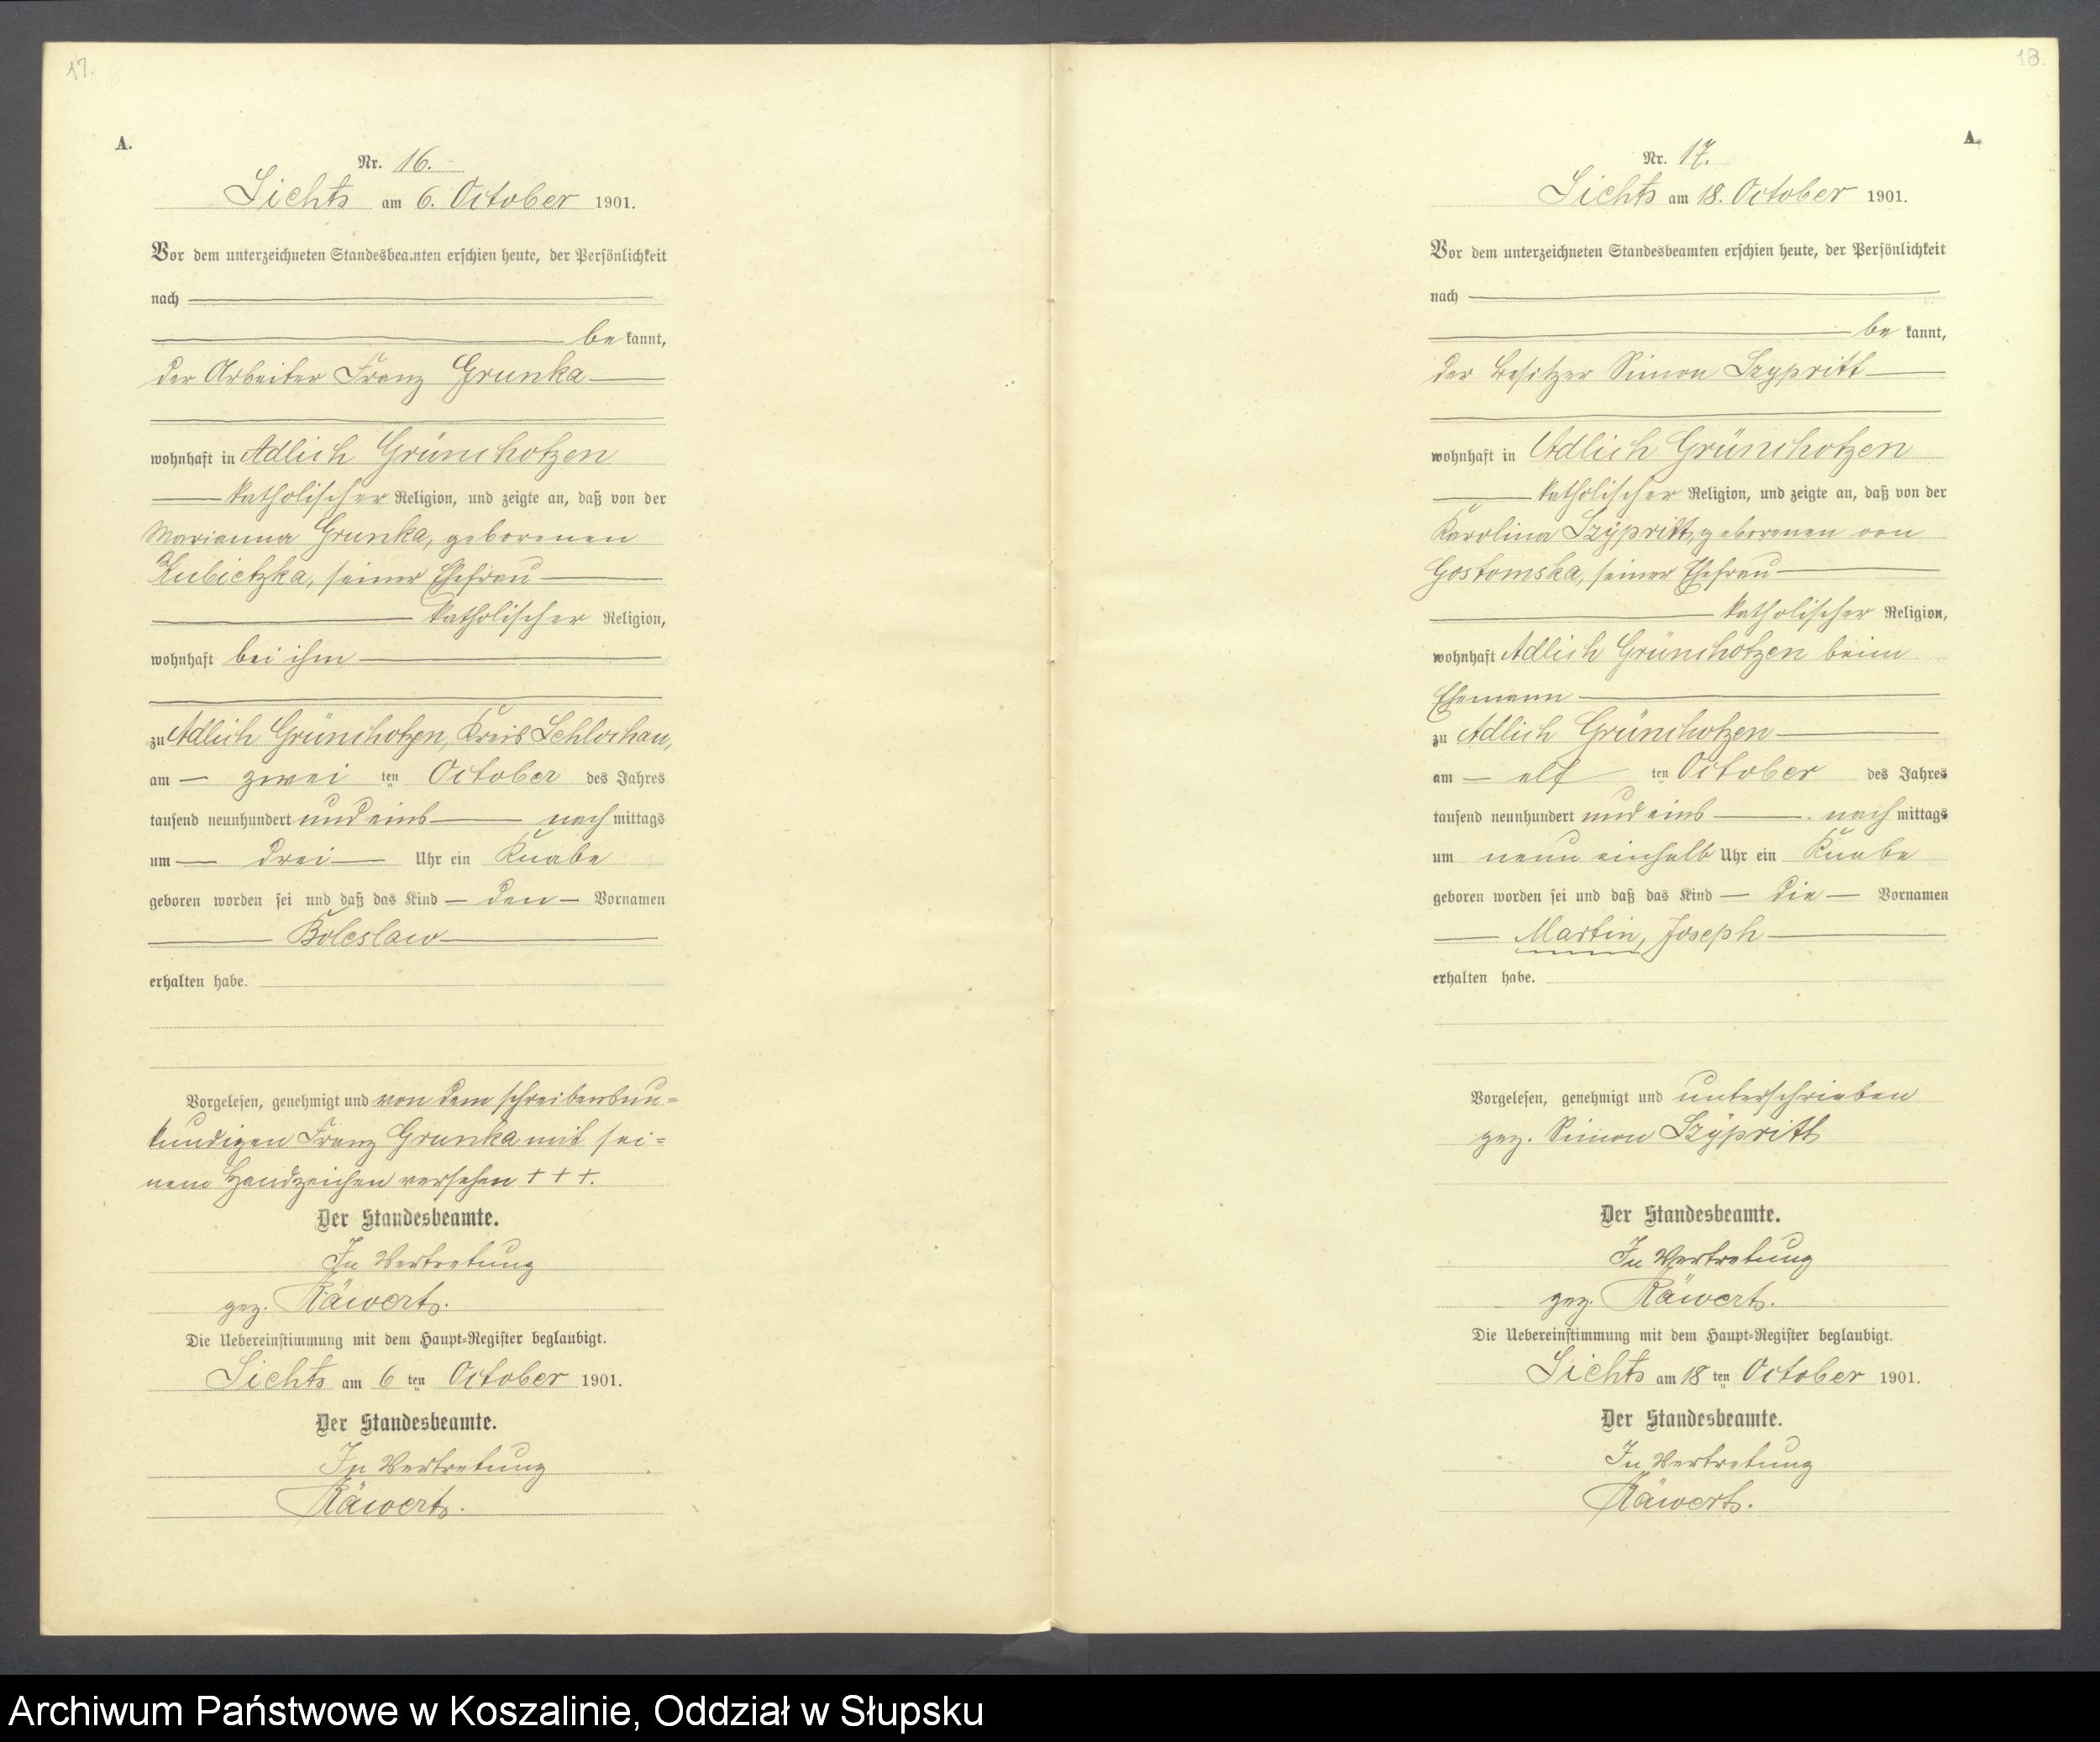 17.
A.
Nr. 16.
Lichts am 6. October 1901.
Vor dem unterzeichneten Standesbeamten erschien heute, der Persönlichkeit
nach
be kannt,
der Arbeiter Franz Grunka
wohnhaft in Adlich Grünchotzen
katholischer Religion, und zeigte an, daß von der
Marianna Grunka, geborenen
Kubietzka, seiner Ehefrau
katholischer Religion,
wohnhaft bei ihm
zu Adlich Grünchotzen, Kreis Schlochau,
am zwei ten October des Jahres
tausend neunhundert und eins nach mittags
um drei Uhr ein Knabe
geboren worden sei und daß das Kind den Vornamen
Boleslaw
erhalten habe.
Vorgelesen, genehmigt und von dem schreibensun=
kundigen Franz Grunka mit sei=
nem Handzeichen versehen + + +.
Der Standesbeamte.
In Vertretung
gez. Räwerts.
Die Uebereinstimmung mit dem Haupt=Register beglaubigt.
Lichts am 6 ten October 1901.
Der Standesbeamte.
In Vertretung
Räwerts.
18.
A.
Nr. 17.
Lichts am 18. October 1901.
Vor dem unterzeichneten Standesbeamten erschien heute, der Persönlichkeit
nach
be kannt,
der Besitzer Simon Szypritt
wohnhaft in Adlich Grünchotzen
katholischer Religion, und zeigte an, daß von der
Karolina Szÿpritt, geborenen von
Gostomska, seiner Ehefrau
katholischer Religion,
wohnhaft Adlich Grünchotzen beim
Ehemann
zu Adlich Grünchotzen
am elf ten October des Jahres
tausend neunhundert und eins nach mittags
um neun einhalb Uhr ein Knabe
geboren worden sei und daß das Kind die Vornamen
Martin, Joseph
erhalten habe.
Vorgelesen, genehmigt und unterschrieben
gez. Simon Szÿpritt
Der Standesbeamte.
In Vertretung
gez. Räwerts.
Die Uebereinstimmung mit dem Haupt=Register beglaubigt.
Lichts am 18 ten October 1901.
Der Standesbeamte.
In Vertretung
Räwerts.
Archiwum Państwowe w Koszalinie, Oddział w Słupsku